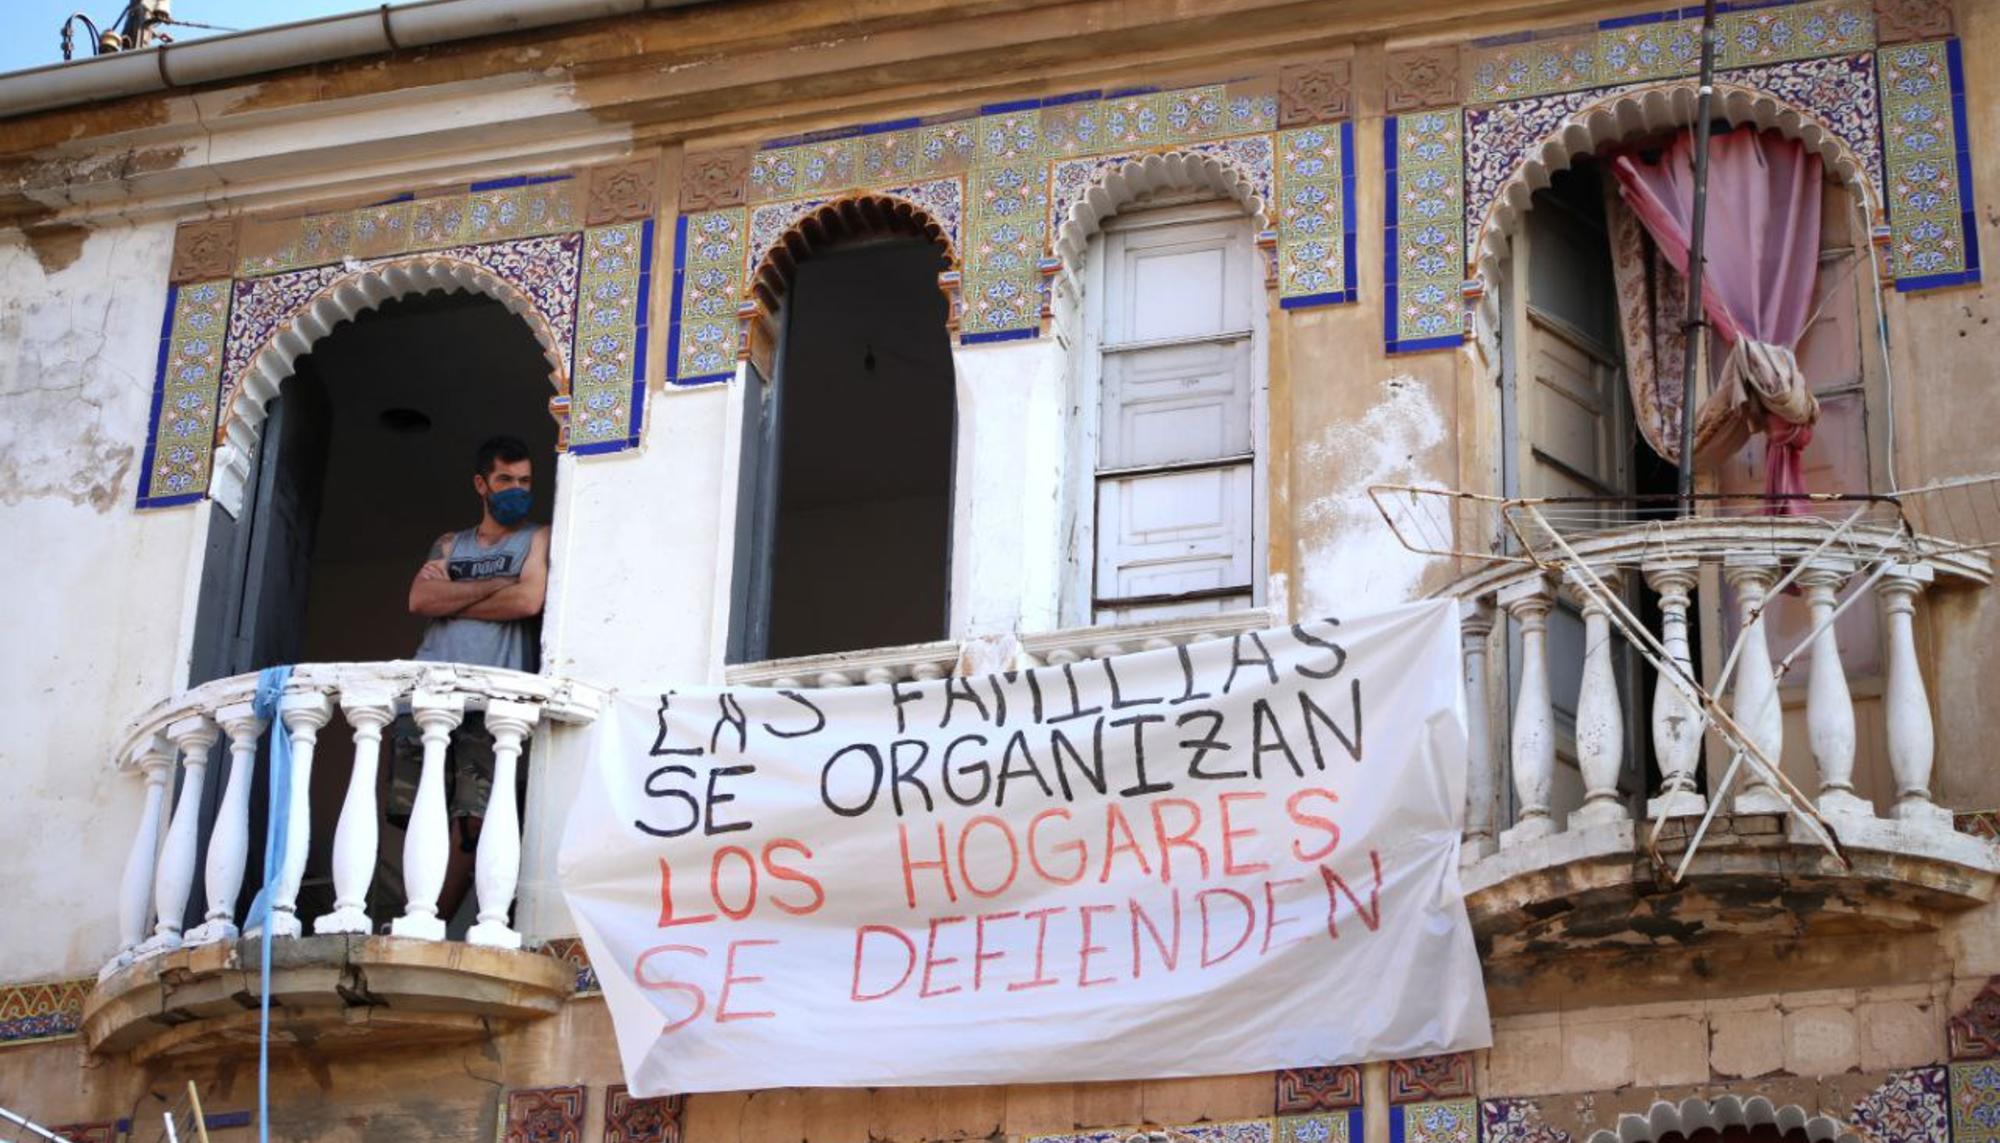 PUMA
LAS FAMILIAS
SE ORGANIZAN
LOS HOGARES
SE DEFIENDEN